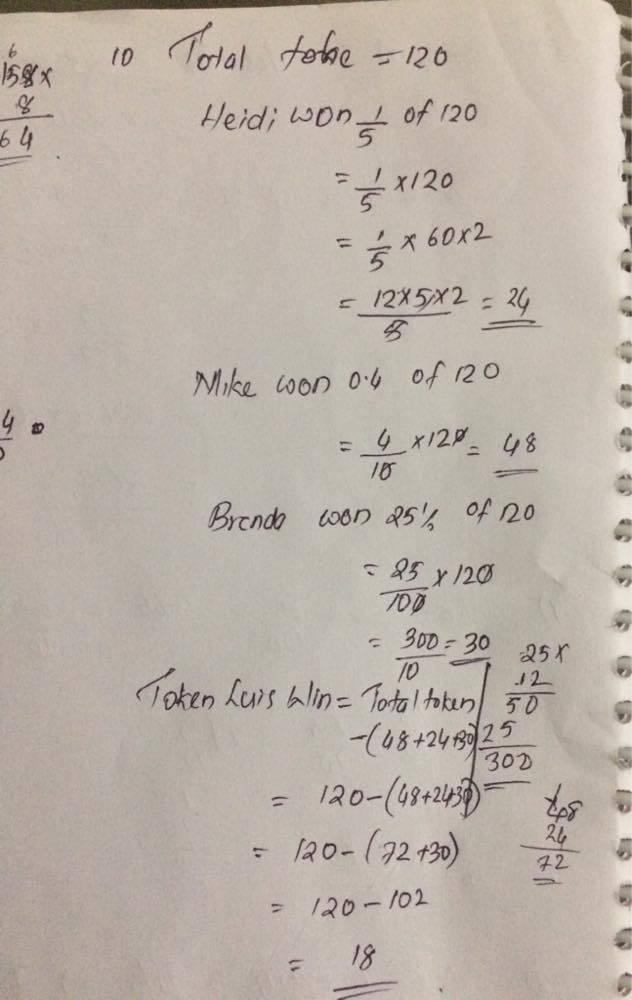 6
158×
8
64
4
10 Total toke = 120
Heidi won 1/5 of 120
= 1/5 × 120
= 1/5 × 60×2
= 12×5×2/5 = 24
Mike won 0.4 of 120
= 4/10 × 120 = 48
Brenda won 25% of 120
= 25/100 × 120
= 300/10 = 30
25×
12
50
25
300
Token Luis Win = Total token
-(48+24+30)
= 120-(48+24+30)
= 120-(72+30)
48
24
72
= 120-102
= 18